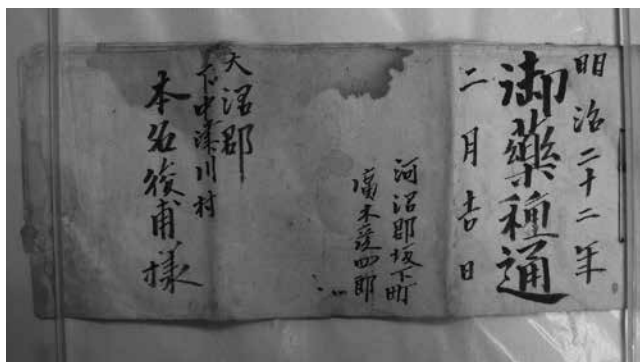 明治二十二年
御藥種通
二月吉日
河沼郡坂下町
廣木 四郎
大沼郡
下中津川村
本名俊甫様